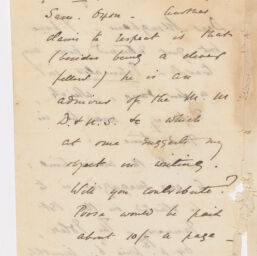 Sam. Oxon. Another
claim to respect is that
(besides being a clever
fellow) he is an
admirer of the
D. & N.S. to which
at once suggests my
object in writing.
Will you contribute?
Prose would be paid
about 10/- a page -